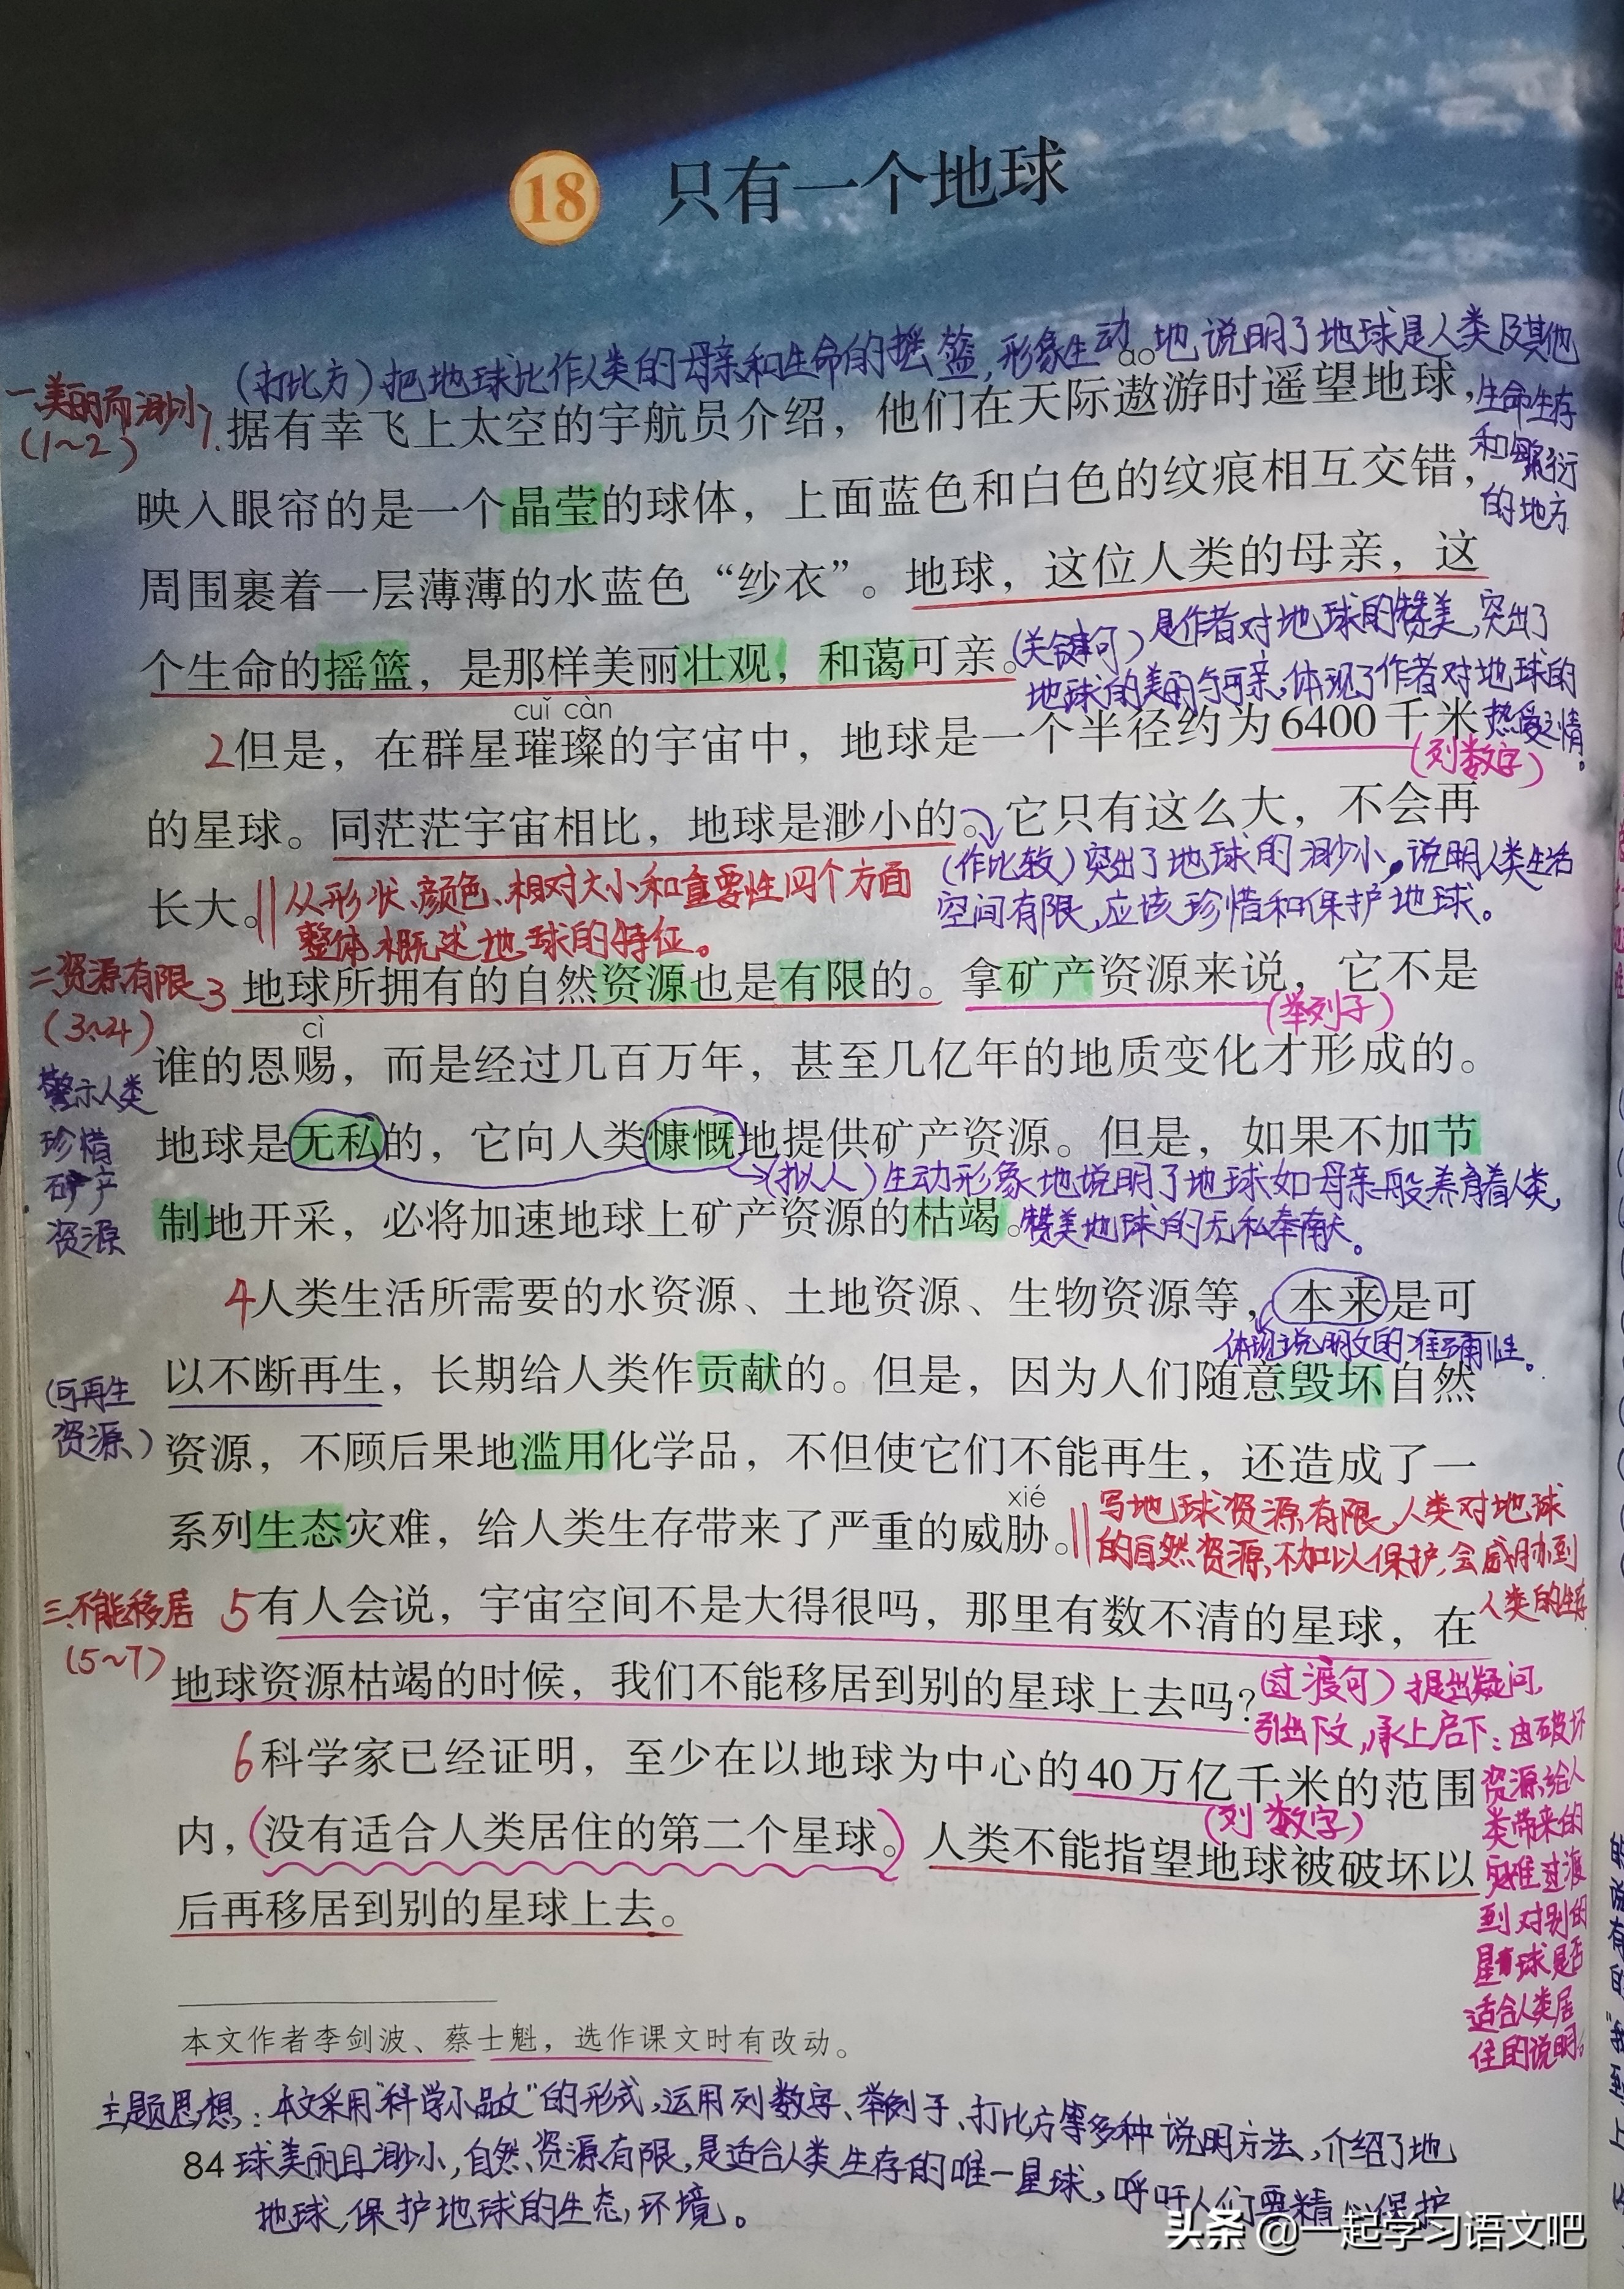 18 只有一个地球
(打比方)把地球比作人类的母亲和生命的摇篮,形象生动地说明了地球是人类及其他
生命生存
和繁衍
的地方
一、美丽而渺小
(1~2)
áo
1.据有幸飞上太空的宇航员介绍，他们在天际遨游时遥望地球，
映入眼帘的是一个晶莹的球体，上面蓝色和白色的纹痕相互交错，
周围裹着一层薄薄的水蓝色“纱衣”。地球，这位人类的母亲，这
个生命的摇篮，是那样美丽壮观，和蔼可亲。
(关键句)是作者对地球的赞美,突出了
地球的美丽与可亲,体现了作者对地球的
热爱之情。
cuǐ càn
2但是，在群星璀璨的宇宙中，地球是一个半径约为6400千米
(列数字)
的星球。同茫茫宇宙相比，地球是渺小的。它只有这么大，不会再
(作比较)突出了地球的渺小,说明人类生活
空间有限,应该珍惜和保护地球。
长大。
从形状、颜色、相对大小和重要性四个方面
整体概述地球的特征。
二、资源有限
(3~4)
3地球所拥有的自然资源也是有限的。拿矿产资源来说，它不是
(举列子)
cì
谁的恩赐，而是经过几百万年，甚至几亿年的地质变化才形成的。
警示人类
珍惜
矿产
资源
地球是无私的，它向人类慷慨地提供矿产资源。但是，如果不加节
(拟人)生动形象地说明了地球如母亲一般养育着人类,
制地开采，必将加速地球上矿产资源的枯竭。
赞美地球的无私奉献。
4人类生活所需要的水资源、土地资源、生物资源等，本来是可
体现说明文的准确性。
(可再生
资源)
以不断再生，长期给人类作贡献的。但是，因为人们随意毁坏自然
资源，不顾后果地滥用化学品，不但使它们不能再生，还造成了一
xié
系列生态灾难，给人类生存带来了严重的威胁。
写地球资源有限,人类对地球
的自然资源,不加以保护,会威胁到
人类的生存
三、不能移居
(5~7)
5有人会说，宇宙空间不是大得很吗，那里有数不清的星球，在
地球资源枯竭的时候，我们不能移居到别的星球上去吗？
(过渡句)提出疑问,
引出下文,承上启下:由破坏
资源,给人
类带来的
灾难过渡
到对别的
星球是否
适合人类居
住的说明。
6科学家已经证明，至少在以地球为中心的40万亿千米的范围
(列数字)
内，(没有适合人类居住的第二个星球。)人类不能指望地球被破坏以
后再移居到别的星球上去。
本文作者李剑波、蔡士魁，选作课文时有改动。
主题思想:本文采用“科学小品文”的形式,运用列数字、举例子、打比方等多种说明方法,介绍了地
84
球美丽且渺小,自然资源有限,是适合人类生存的唯一星球,呼吁人们要精心保护
地球,保护地球的生态环境。
头条 @一起学习语文吧